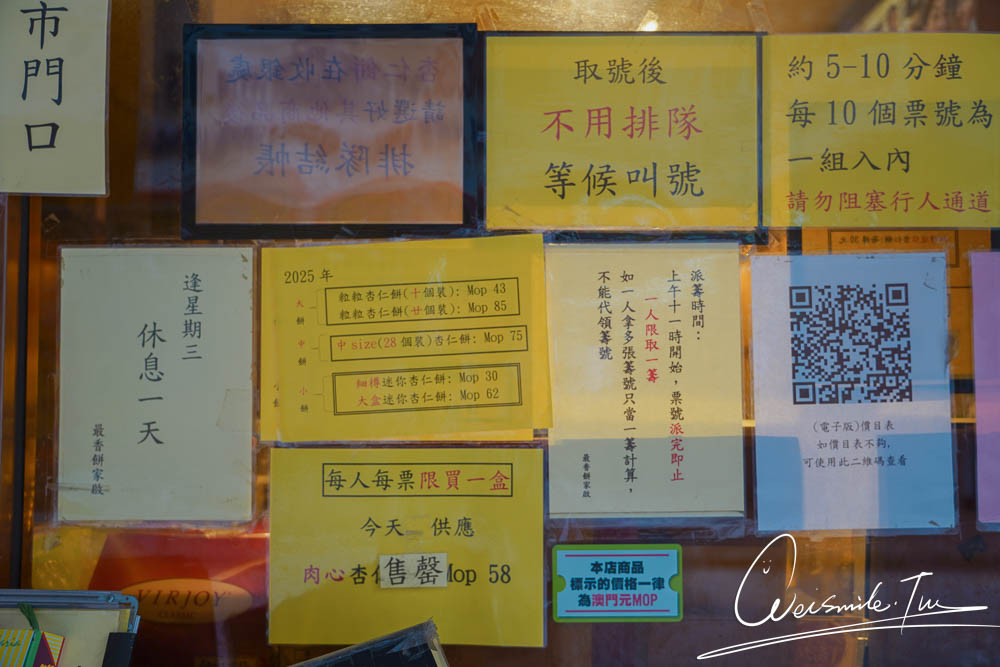 市門口
杏仁餅在收銀處
請選好其他商品後
排隊結帳
取號後
不用排隊
等候叫號
約 5-10 分鐘
每 10 個票號為
一組入內
請勿阻塞行人通道
逢星期三
休息一天
最香餅家啟
2025 年
大餅
粒粒杏仁餅(十個裝): Mop 43
粒粒杏仁餅(廿個裝): Mop 85
中餅
中 size(28 個裝)杏仁餅: Mop 75
小餅
細樽迷你杏仁餅: Mop 30
大盒迷你杏仁餅: Mop 62
派籌時間：
上午十一時開始，票號派完即止
一人限取一籌
如一人拿多張籌號只當一籌計算，
不能代領籌號
最香餅家啟
(電子版)價目表
如價目表不夠,
可使用此二維碼查看
每人每票限買一盒
今天 供應
肉心杏仁 售罄 Mop 58
本店商品
標示的價格一律
為澳門元MOP
VIRJOY
CLASSIC
Weismile.Tu